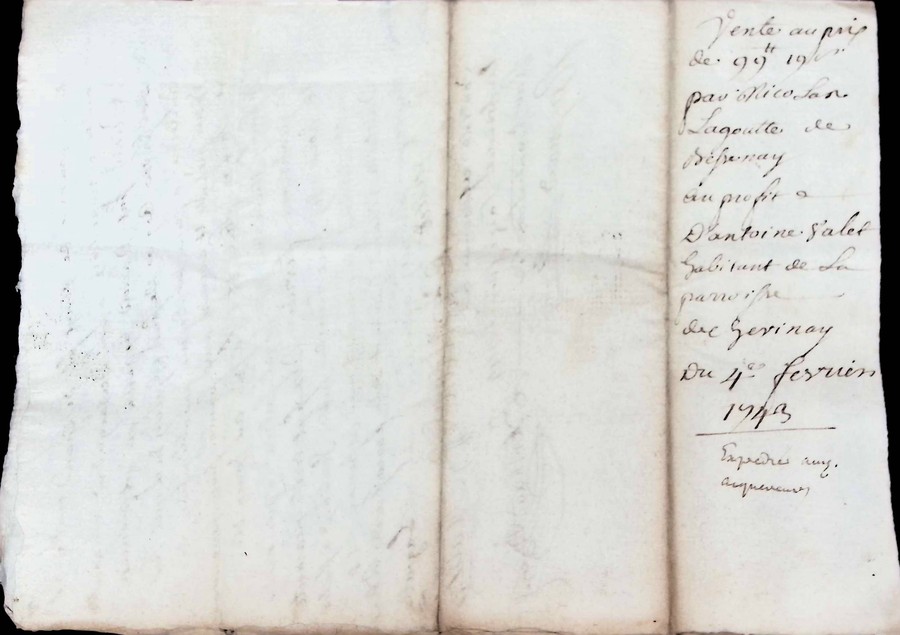 Vente au prix
de 99tt 19s
par Nicolas
Lagoutte de
au profit
D'antoine Valet
habitant de la
parroisse
de Gevinay
Du 4e fevrier
1743
Expedie aux
acquereurs